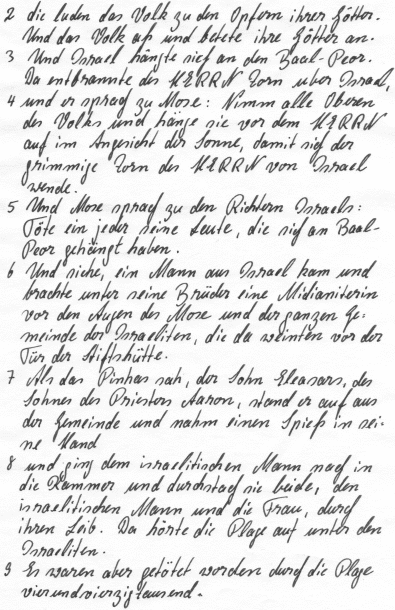 2 die luden das Volk zu den Opfern ihrer Götter.
Und das Volk aß und betete ihre Götter an.
3 Und Israel hängte sich an den Baal-Peor.
Da entbrannte des HERRN Zorn über Israel,
4 und er sprach zu Mose: Nimm alle Oberen
des Volks und hänge sie vor dem HERRN
auf im Angesicht der Sonne, damit sich der
grimmige Zorn des HERRN von Israel
wende.
5 Und Mose sprach zu den Richtern Israels:
Töte ein jeder seine Leute, die sich an Baal-
Peor gehängt haben.
6 Und siehe, ein Mann aus Israel kam und
brachte unter seine Brüder eine Midianiterin
vor den Augen des Mose und der ganzen Ge-
meinde der Israeliten, die da weinten vor der
Tür der Stiftshütte.
7 Als das Pinhas sah, der Sohn Eleasars, des
Sohnes des Priesters Aaron, stand er auf aus
der Gemeinde und nahm einen Spieß in sei-
ne Hand
8 und ging dem israelitischen Mann nach in
die Kammer und durchstach sie beide, den
israelitischen Mann und die Frau, durch
ihren Leib. Da hörte die Plage auf unter den
Israeliten.
9 Es waren aber getötet worden durch die Plage
vierundvierzigtausend.